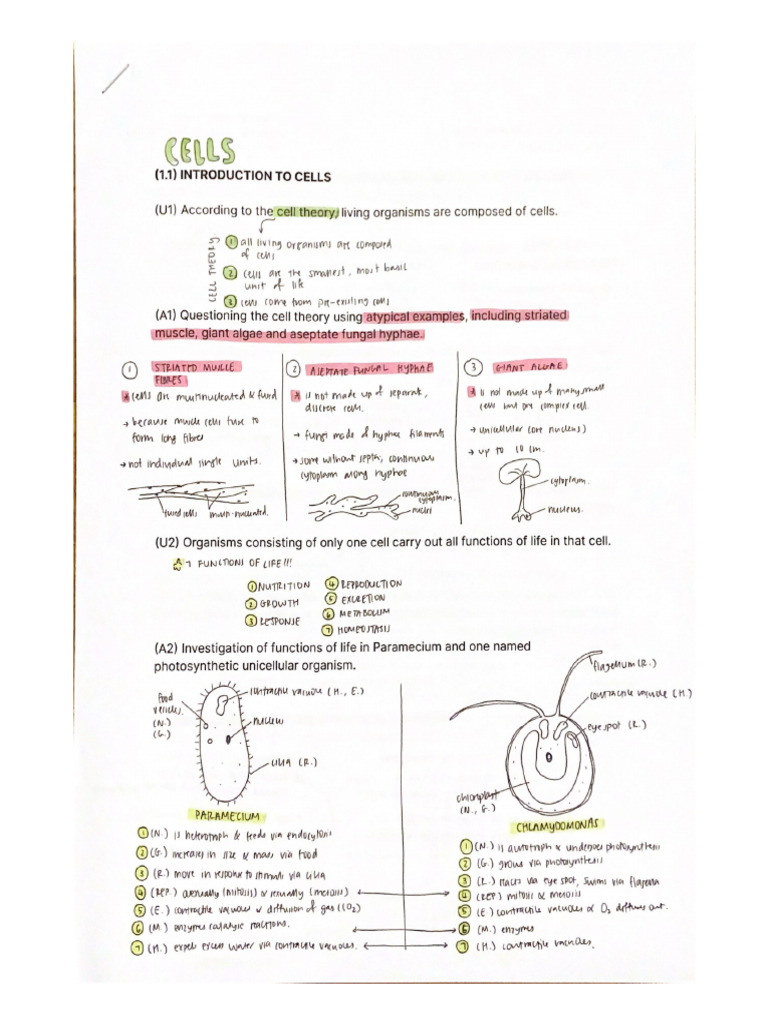 CELLS
(1.1) INTRODUCTION TO CELLS
(U1) According to the cell theory, living organisms are composed of cells.
CELL THEORY
1 all living organisms are composed
of cells
2 cells are the smallest, most basic
unit of life
3 cells come from pre-existing cells
(A1) Questioning the cell theory using atypical examples, including striated
muscle, giant algae and aseptate fungal hyphae.
1 STRIATED MUSCLE
FIBRES
cells are multinucleated & fused
→ because muscle cells fuse to
form long fibres
→ not individual single units.
fused cells multi-nucleated.
2 ASEPTATE FUNGAL HYPHAE
is not made up of separate,
discrete cells.
→ fungi made of hyphae filaments
→ some without septa, continuous
cytoplasm along hyphae
continuous
cytoplasm.
nuclei
3 GIANT ALGAE
is not made up of many small
cells but one complex cell.
→ unicellular (one nucleus)
→ up to 10 cm.
cytoplasm.
nucleus.
(U2) Organisms consisting of only one cell carry out all functions of life in that cell.
7 FUNCTIONS OF LIFE!!!
1 NUTRITION
2 GROWTH
3 RESPONSE
4 REPRODUCTION
5 EXCRETION
6 METABOLISM
7 HOMEOSTASIS
(A2) Investigation of functions of life in Paramecium and one named
photosynthetic unicellular organism.
food
vesicles.
(N.)
(G.)
contractile vacuole (H., E.)
nucleus
cilia (R.)
PARAMECIUM
1 (N.) is heterotroph & feeds via endocytosis
2 (G.) increases in size & mass via food
3 (R.) move in response to stimuli via cilia
4 (REP.) asexually (mitosis) or sexually (meiosis)
5 (E.) contractile vacuoles & diffusion of gas (CO2)
6 (M.) enzymes catalyse reactions.
7 (H.) expels excess water via contractile vacuoles.
flagellum (R.)
contractile vacuole (H.)
eye spot (R.)
chloroplast
(N., G.)
CHLAMYDOMONAS
1 (N.) is autotroph & undergoes photosynthesis
2 (G.) grows via photosynthesis
3 (R.) reacts via eye spot, swims via flagella
4 (REP) mitosis & meiosis
5 (E.) contractile vacuoles & O2 diffuses out.
6 (M.) enzymes
7 (H.) contractile vacuoles.